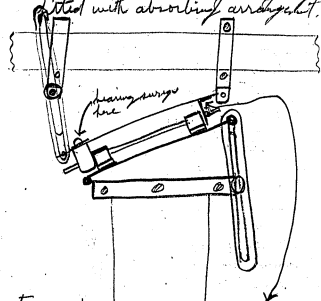 fitted with absorbing arrangement.
bearing surface
here